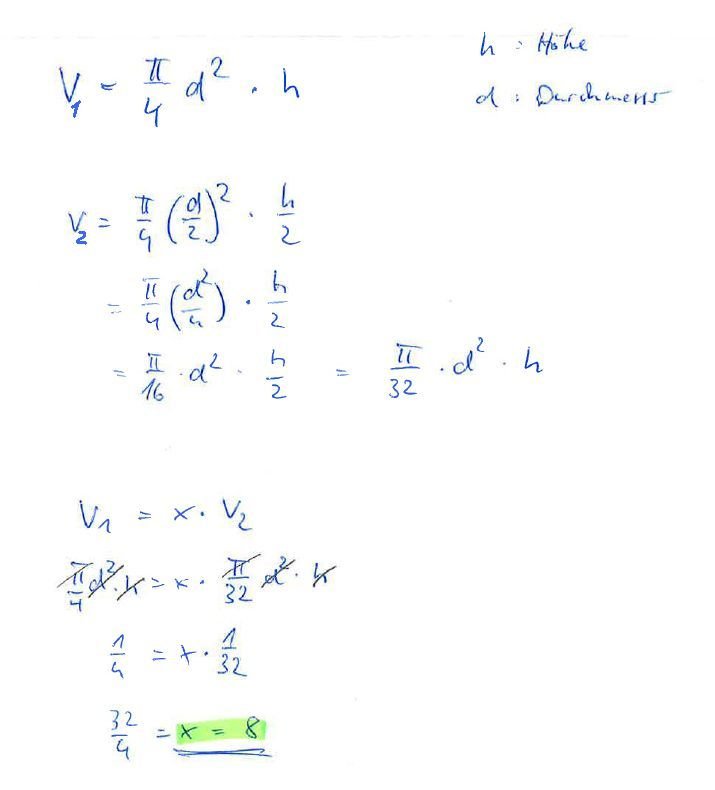 V₁ = π/4 d² · h
h : Höhe
d : Durchmess
V₂ = π/4 (d/2)² · h/2
= π/4 (d²/4) · h/2
= π/16 · d² · h/2 = π/32 · d² · h
V₁ = x · V₂
π/4 d² · h = x · π/32 d² · h
1/4 = x · 1/32
32/4 = x = 8